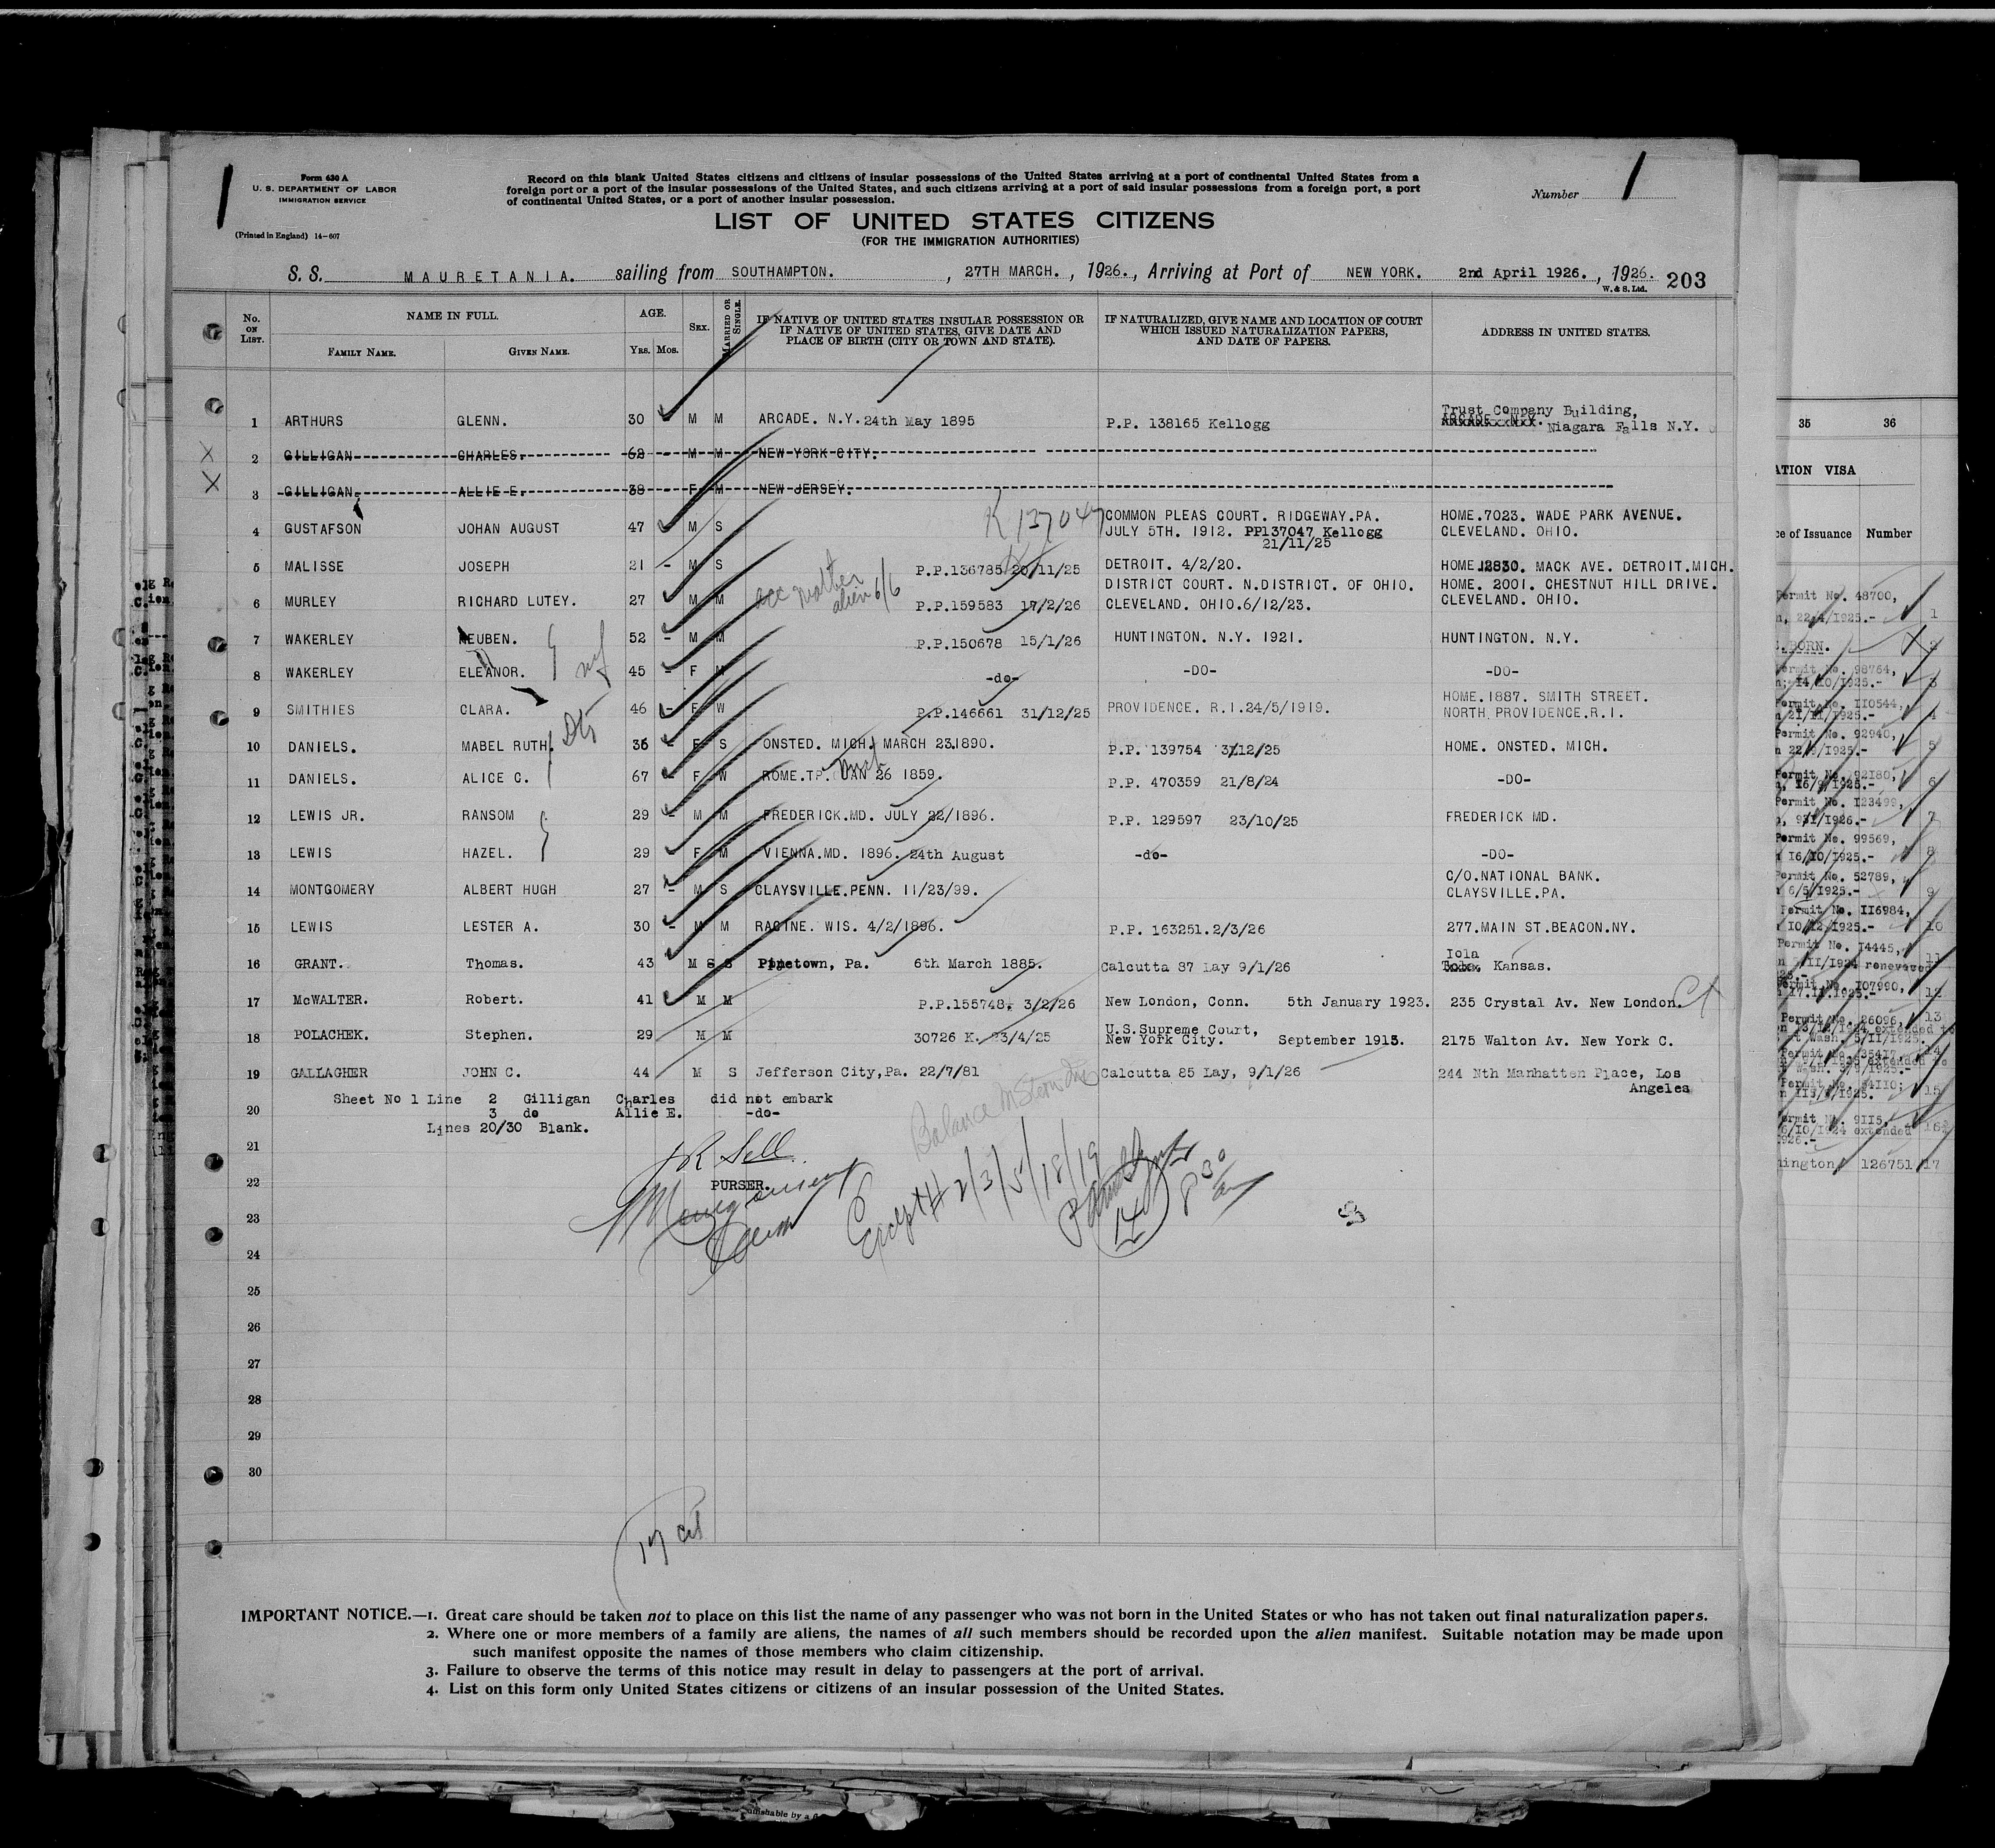 Form 630 A
U. S. DEPARTMENT OF LABOR
IMMIGRATION SERVICE
(Printed in England) 14-607
Record on this blank United States citizens and citizens of insular possessions of the United States arriving at a port of continental United States from a
foreign port or a port of the insular possessions of the United States, and such citizens arriving at a port of said insular possessions from a foreign port, a port
of continental United States, or a port of another insular possession.
Number 1
1
LIST OF UNITED STATES CITIZENS
(FOR THE IMMIGRATION AUTHORITIES)
S.S. MAURETANIA. sailing from SOUTHAMPTON. , 27TH MARCH. , 1926., Arriving at Port of NEW YORK. 2nd April 1926. , 1926.
W. & S. Ltd. 203
No. ON LIST. NAME IN FULL. AGE. SEX. MARRIED OR SINGLE. IF NATIVE OF UNITED STATES INSULAR POSSESSION OR IF NATIVE OF UNITED STATES, GIVE DATE AND PLACE OF BIRTH (CITY OR TOWN AND STATE). IF NATURALIZED, GIVE NAME AND LOCATION OF COURT WHICH ISSUED NATURALIZATION PAPERS, AND DATE OF PAPERS. ADDRESS IN UNITED STATES.
FAMILY NAME. GIVEN NAME. YRS. MOS.
1 ARTHURS GLENN. 30 M M ARCADE. N.Y. 24th May 1895 P.P. 138165 Kellogg Trust Company Building, ARCADE N.Y. Niagara Falls N.Y.
2 GILLIGAN CHARLES. 62 - M M NEW YORK CITY.
3 GILLIGAN. ALLIE E. 39 - F M NEW JERSEY.
K 137047
4 GUSTAFSON JOHAN AUGUST 47 M S COMMON PLEAS COURT. RIDGEWAY.PA. JULY 5TH. 1912. PP137047 Kellogg 21/11/25 HOME.7023. WADE PARK AVENUE. CLEVELAND. OHIO.
5 MALISSE JOSEPH 21 - M S P.P.136785 20/11/25 DETROIT. 4/2/20. HOME.12830. MACK AVE. DETROIT.MICH.
6 MURLEY RICHARD LUTEY. 27 M M alien 6/6 P.P.159583 17/2/26 DISTRICT COURT. N.DISTRICT. OF OHIO. CLEVELAND. OHIO.6/12/23. HOME. 2001. CHESTNUT HILL DRIVE. CLEVELAND. OHIO.
7 WAKERLEY REUBEN. 52 - M M P.P.150678 15/1/26 HUNTINGTON. N.Y. 1921. HUNTINGTON. N.Y.
8 WAKERLEY ELEANOR. 45 - F M -do- -DO- -DO-
9 SMITHIES CLARA. 46 - F W P.P.146661 31/12/25 PROVIDENCE. R.I.24/5/1919. HOME.1887. SMITH STREET. NORTH PROVIDENCE.R.I.
10 DANIELS. MABEL RUTH. 36 - F S ONSTED. MICH. MARCH 23.1890. P.P. 139754 3/12/25 HOME. ONSTED. MICH.
11 DANIELS. ALICE C. 67 - F W ROME.TP. Mich JAN 26 1859. P.P. 470359 21/8/24 -DO-
12 LEWIS JR. RANSOM 29 - M M FREDERICK.MD. JULY 22/1896. P.P. 129597 23/10/25 FREDERICK MD.
13 LEWIS HAZEL. 29 - F M VIENNA.MD. 1896. 24th August -do- -DO-
14 MONTGOMERY ALBERT HUGH 27 - M S CLAYSVILLE.PENN. 11/23/99. C/O.NATIONAL BANK. CLAYSVILLE.PA.
15 LEWIS LESTER A. 30 - M M RACINE. WIS. 4/2/1896. P.P. 163251.2/3/26 277.MAIN ST.BEACON.NY.
16 GRANT. Thomas. 43 M S S Pinetown, Pa. 6th March 1885. Calcutta 87 Lay 9/1/26 Iola Kansas.
17 McWALTER. Robert. 41 M M P.P.155748, 3/2/26 New London, Conn. 5th January 1923. 235 Crystal Av. New London. Ct
18 POLACHEK. Stephen. 29 M M 30726 K. 23/4/25 U.S.Supreme Court, New York City. September 1913. 2175 Walton Av. New York C.
19 GALLAGHER JOHN C. 44 M S Jefferson City,Pa. 22/7/81 Calcutta 85 Lay, 9/1/26 244 Nth Manhatten Place, Los Angeles
Sheet No 1 Line 2 Gilligan Charles did not embark
20 3 do Allie E. -do-
Lines 20/30 Blank.
21
J R Sell.
22 PURSER.
Except # 2/3/5/18/19
14 8 30 am
23
24
25
26
27
28
29
30
17 cit
IMPORTANT NOTICE.—1. Great care should be taken not to place on this list the name of any passenger who was not born in the United States or who has not taken out final naturalization papers.
2. Where one or more members of a family are aliens, the names of all such members should be recorded upon the alien manifest. Suitable notation may be made upon
such manifest opposite the names of those members who claim citizenship.
3. Failure to observe the terms of this notice may result in delay to passengers at the port of arrival.
4. List on this form only United States citizens or citizens of an insular possession of the United States.
35 36
ATION VISA
ce of Issuance Number
Permit No. 48700,
22/4/1925.- 1
BORN. 2
Permit No. 98764,
14/10/1925.- 3
Permit No. II0544,
21/11/1925.- 4
Permit No. 92940,
1925.- 5
Permit No. 92180, 6
16/9/1925.-
Permit No. I23499,
1926.- 7
Permit No. 99569,
16/10/1925.- 8
Permit No. 52789,
6/5/1925.- 9
Permit No. II6984,
10/12/1925.- 10
Permit No. I4445, 11
Permit No. I07990, 12
Permit No. 26096, 13
14
15
9II5,
extended 16
ington 126751 17